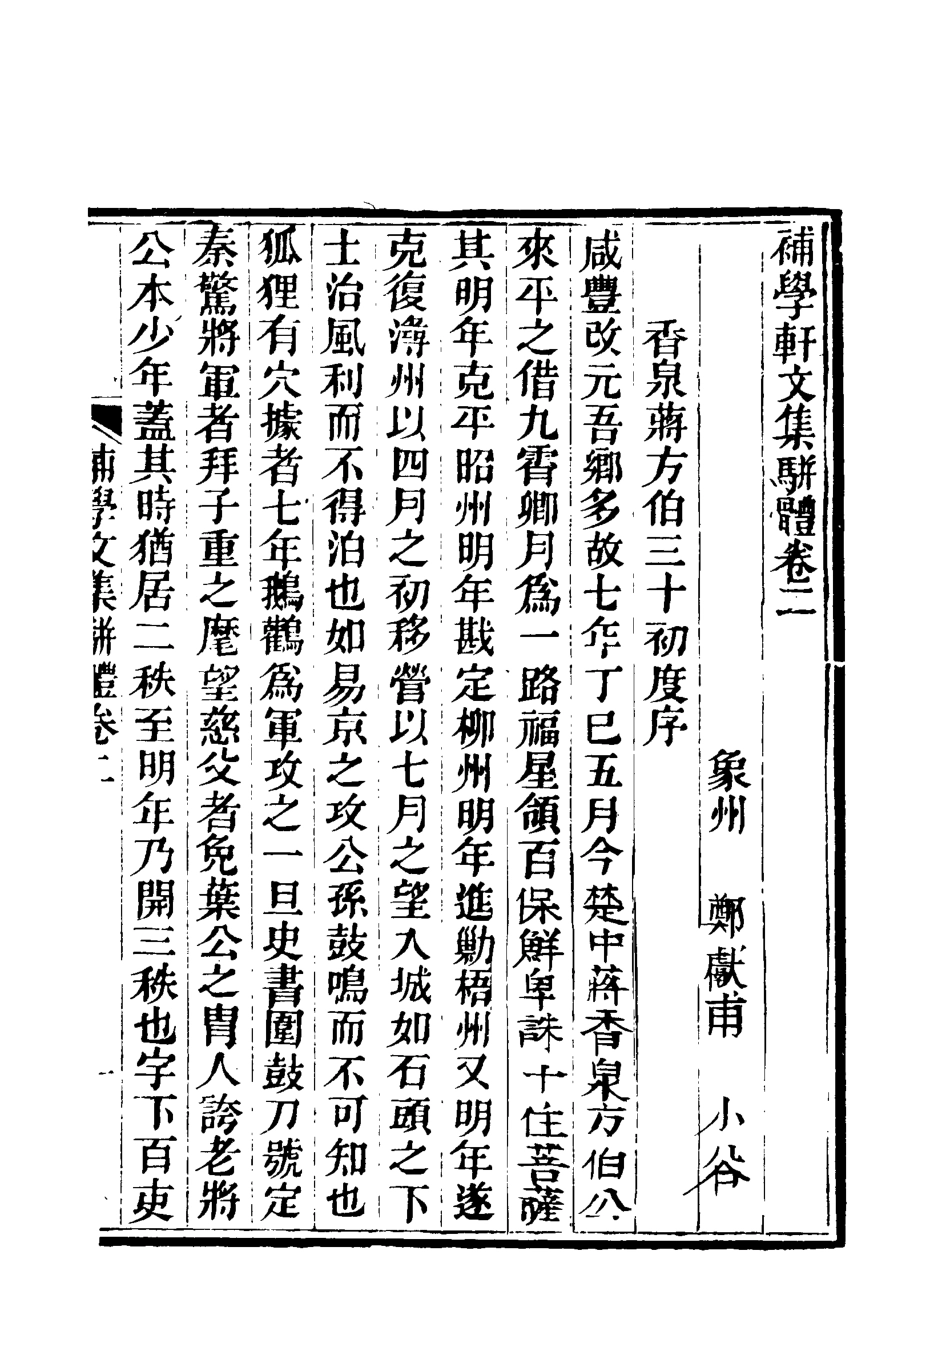 補學軒文集駢體卷二
象州 鄭獻甫 小谷
香泉蔣方伯三十初度序
咸豐改元吾鄉多故七年丁巳五月今楚中蔣香泉方伯公
來平之借九霄卿月爲一路福星領百保鮮卑誅十住菩薩
其明年克平昭州明年戡定柳州明年進勦梧州又明年遂
克復潯州以四月之初移營以七月之望入城如石頭之下
士治風利而不得泊也如易京之攻公孫鼓鳴而不可知也
狐狸有穴據者七年鵝鸛爲軍攻之一旦史書圍鼓刀號定
秦驚將軍者拜子重之麾望慈父者免葉公之胄人誇老將
公本少年蓋其時猶居二秩至明年乃開三秩也字下百吏
補學文集駢體卷二 一